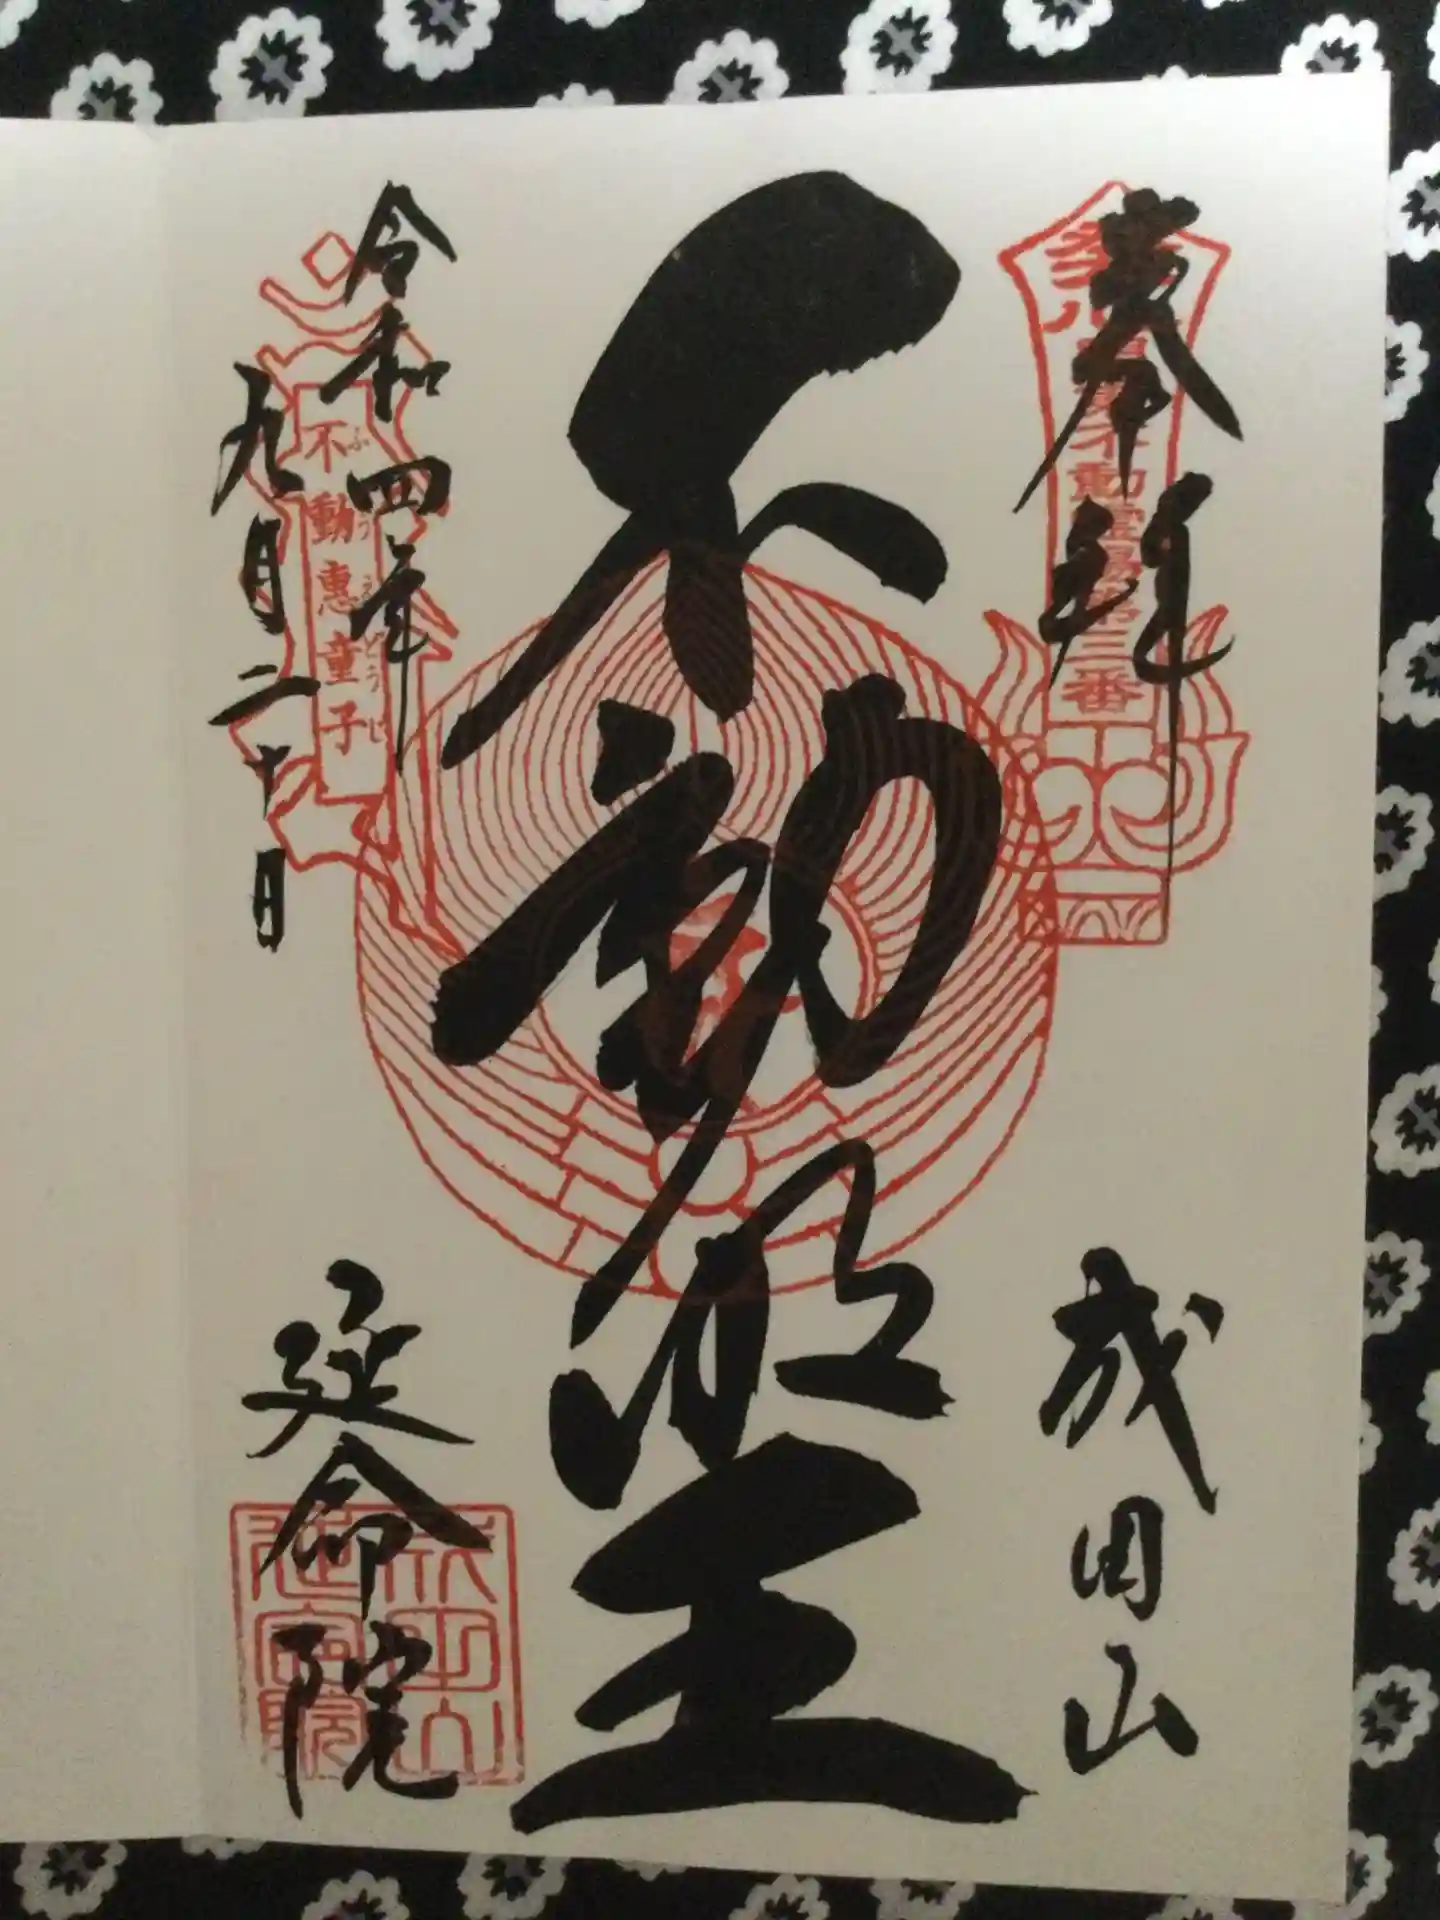 奉拝
不動霊場第三番
成田山
不動明王
令和四年
九月二十日
不動恵童子
ふどうえどうじ
延命院